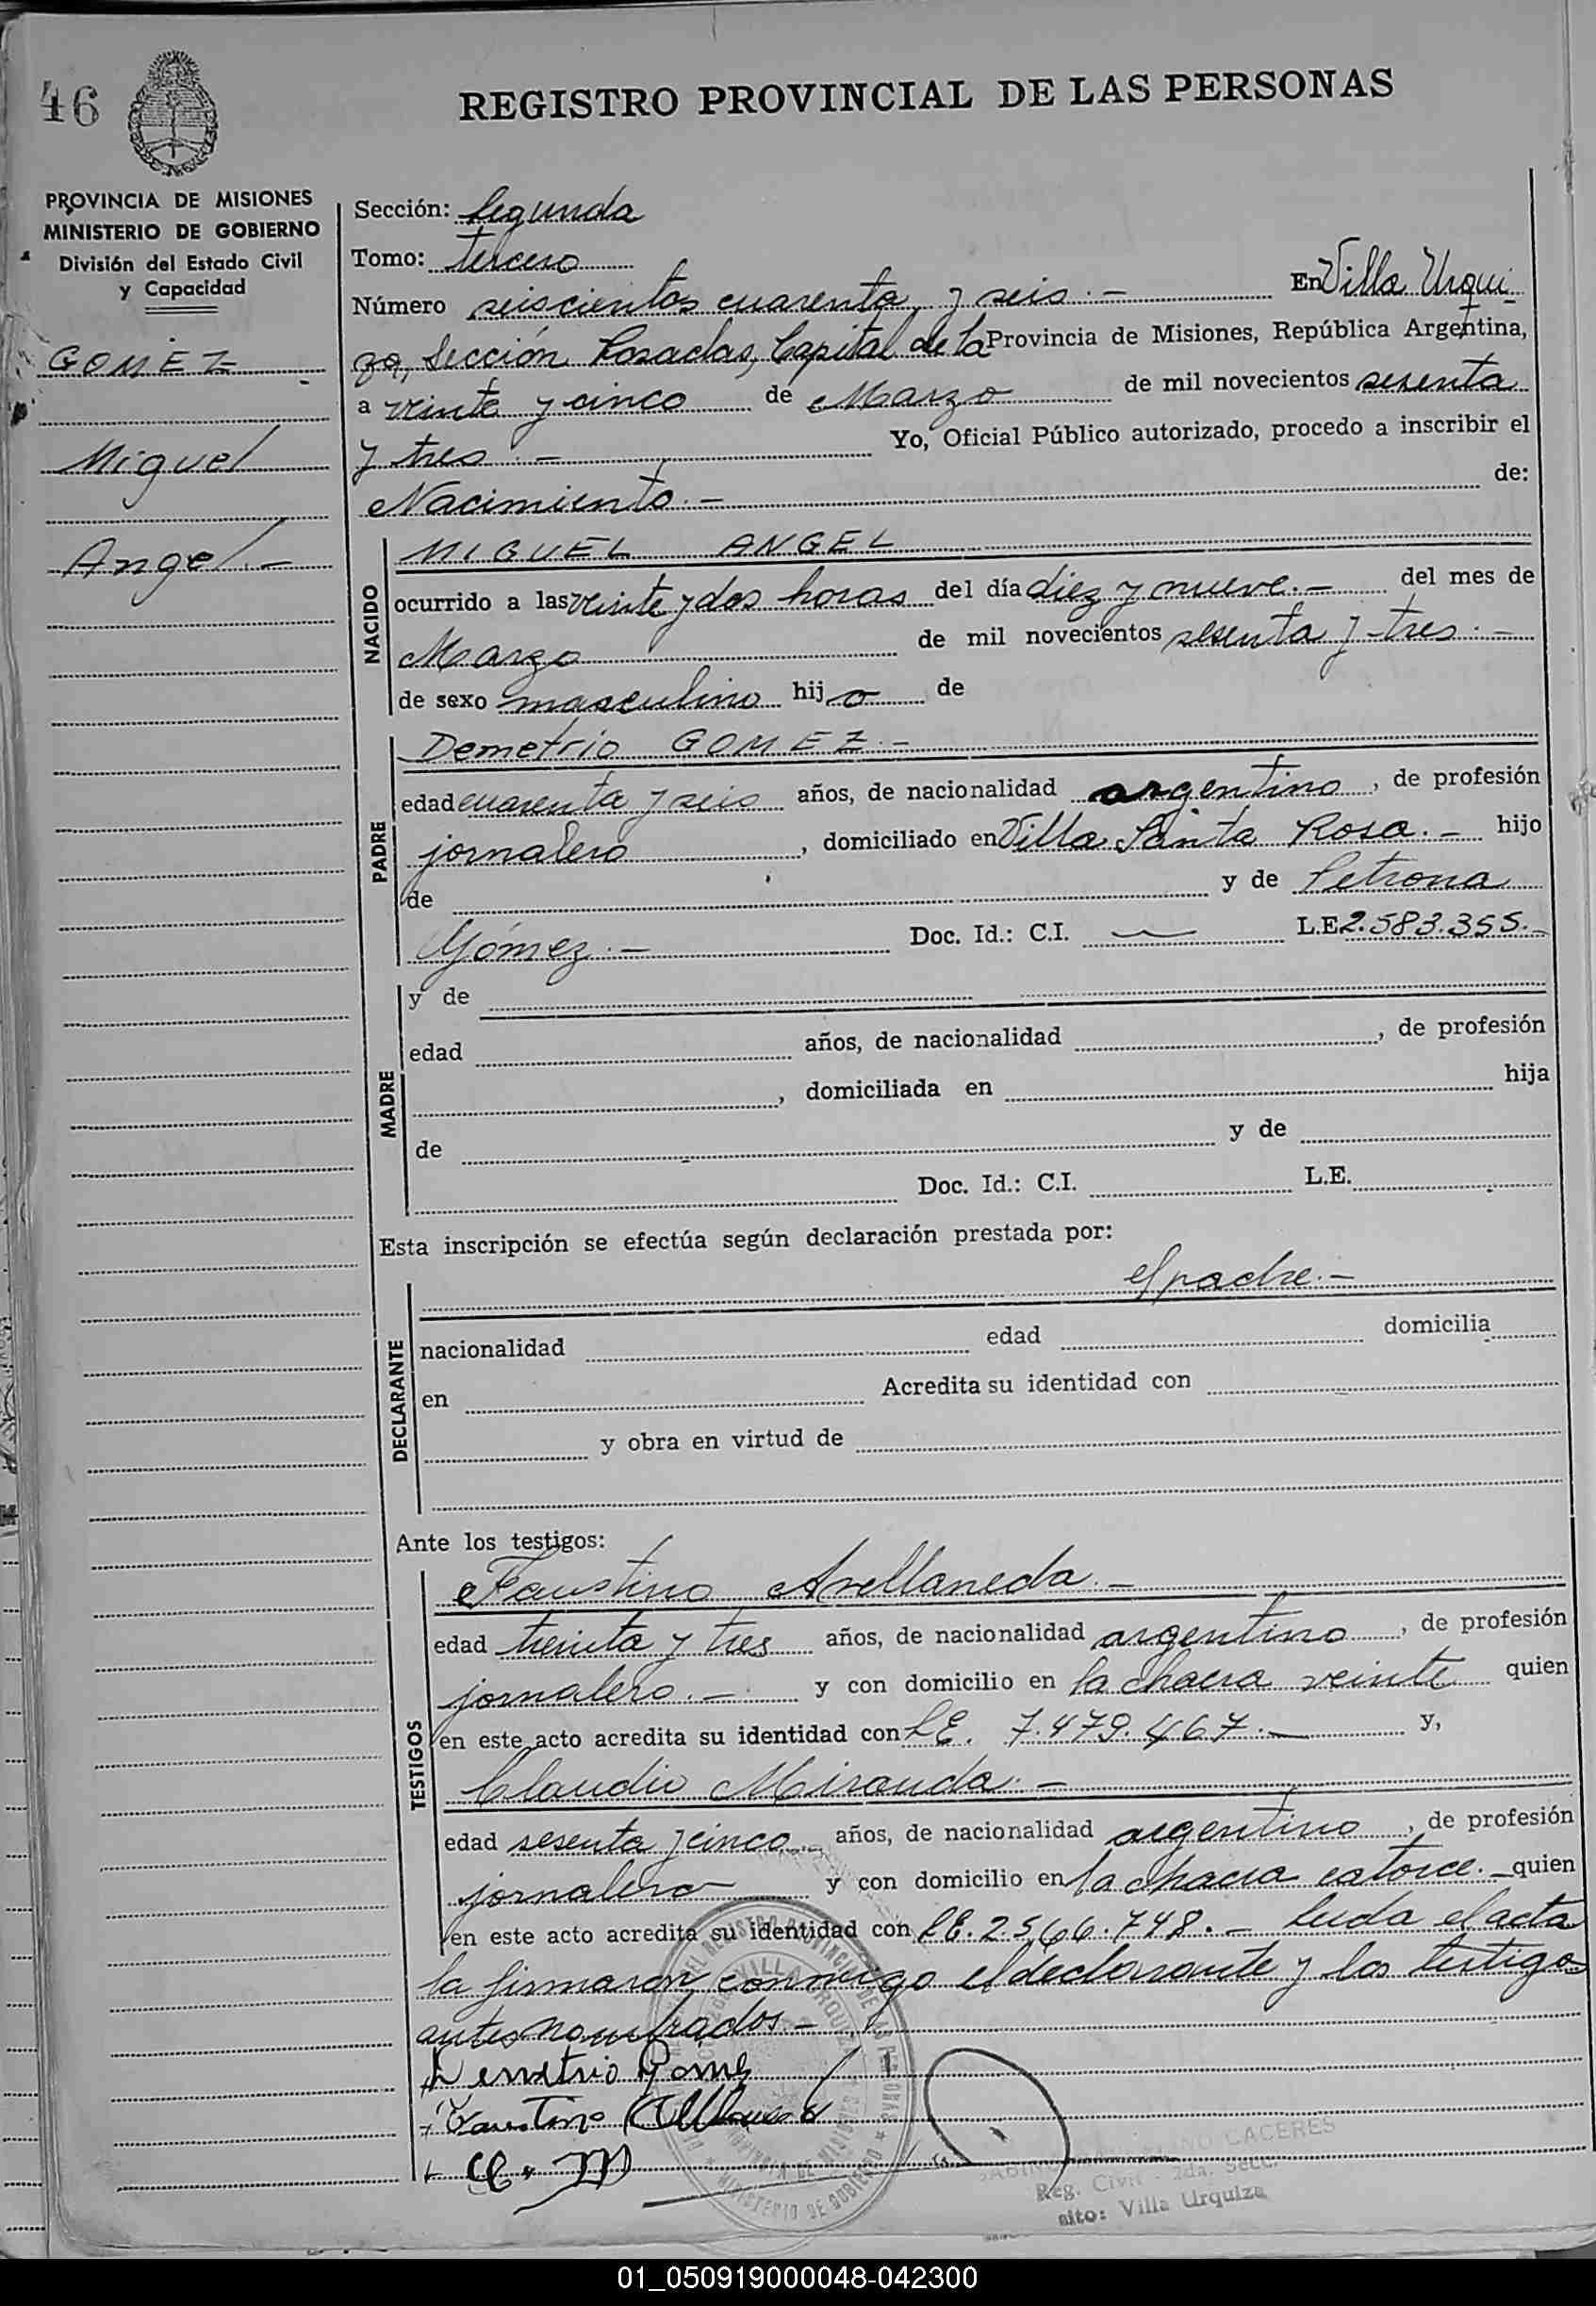 46
REGISTRO PROVINCIAL DE LAS PERSONAS
PROVINCIA DE MISIONES
MINISTERIO DE GOBIERNO
División del Estado Civil
y Capacidad
GOMEZ
Miguel
Angel.-
Sección: Segunda
Tomo: tercero
Número seiscientos cuarenta y seis.- En Villa Urqui
za, Sección Posadas, Capital de la Provincia de Misiones, República Argentina,
a veinte y cinco de Marzo de mil novecientos sesenta
y tres.- Yo, Oficial Público autorizado, procedo a inscribir el
Nacimiento.- de:
NACIDO
MIGUEL ANGEL
ocurrido a las veinte y dos horas del día diez y nueve.- del mes de
Marzo de mil novecientos sesenta y tres.-
de sexo masculino hijo de
PADRE
Demetrio GOMEZ.-
edad cuarenta y seis años, de nacionalidad argentino, de profesión
jornalero, domiciliado en Villa Santa Rosa.- hijo
de y de Petrona
Gómez.- Doc. Id.: C.I. — L.E. 2.583.355.-
MADRE
y de
edad años, de nacionalidad , de profesión
, domiciliada en hija
de y de
Doc. Id.: C.I. L.E.
Esta inscripción se efectúa según declaración prestada por:
el padre.-
DECLARANTE
nacionalidad edad domicilia
en Acredita su identidad con
y obra en virtud de
Ante los testigos:
TESTIGOS
Faustino Avellaneda.-
edad treinta y tres años, de nacionalidad argentino, de profesión
jornalero.- y con domicilio en la chacra veinte quien
en este acto acredita su identidad con L.E. 7.479.467.- y,
Claudio Miranda.-
edad sesenta y cinco años, de nacionalidad argentino, de profesión
jornalero y con domicilio en la chacra catorce.- quien
en este acto acredita su identidad con L.E. 2.566.748.- Leida el acta
la firmaron conmigo el declarante y los testigos
antes nombrados.-
Demetrio Gomez
Faustino
C. M
CACERES
Reg. Civil - 2da. Secc.
sito: Villa Urquiza
01_050919000048-042300